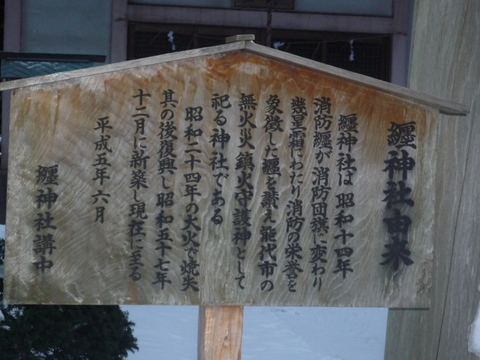 纒神社由来
纒神社は昭和十四年
消防纒が消防団旗に変わり
幾星霜にわたり消防の栄誉を
象徴した纒を讃え能代市の
無火災鎮火守護神として
祀る神社である
昭和二十四年の大火で焼失
其の後復興し昭和五十七年
十二月に新築し現在に至る
平成五年六月
纒神社講中